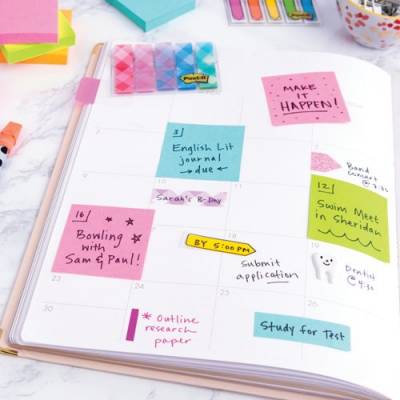 Post-it
Post-it
MAKE
IT
HAPPEN!
3
English Lit
journal
→ due ←
Band
concert
@ 7:30
12
Swim Meet
in Sheridan
Sarah's B-Day
16
Bowling
with
Sam & Paul!
BY 5:00 PM
Submit
application
19
Dentist
@ 4:30
23
24
25
26
30
* Outline
research
paper
Study for Test